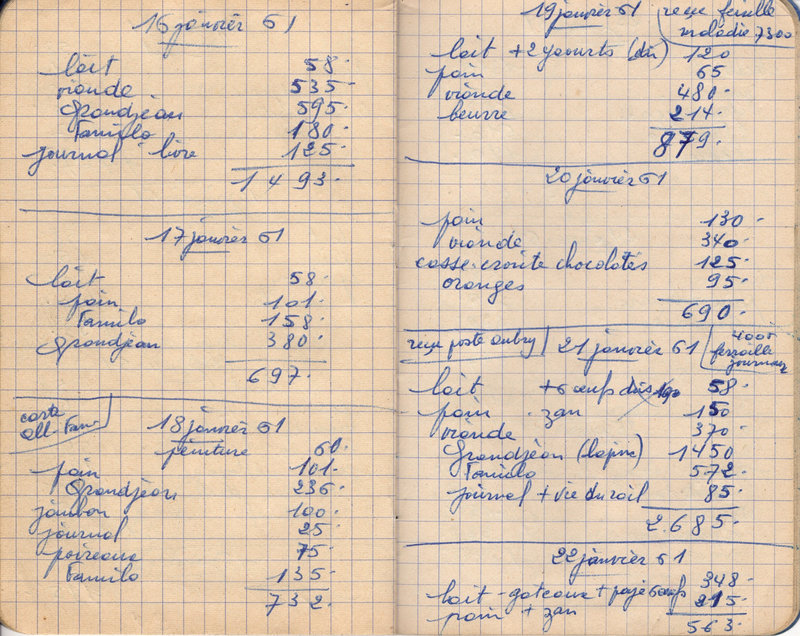 16 janvier 61
lait 58.
viande 535.
Grandjean 595.
Familo 180.
journal livre 125.
1493.
17 janvier 61
lait 58.
pain 101.
Familo 158.
Grandjean 380.
697.
carte
All. Fam.
18 janvier 61
peinture 60.
pain 101.
Grandjean 236.
jambon 100.
journal 25.
poireaux 75.
Familo 135.
732.
19 janvier 61
reçu feuille
maladie 7300
lait + 2 yaourts (dû) 120
pain 65
viande 480.
beurre 214.
879.
20 janvier 61
pain 130.
viande 340.
casse-croûte chocolatés 125.
oranges 95.
690.
reçu poste Aubry
21 janvier 61
400f
ferraille
journaux
lait + 6 œufs dûs 190 58.
pain . zan 150
viande 370.
Grandjean (lapin) 1450
Familo 572.
journal + vie du rail 85.
2.685.
22 janvier 61
lait - gateaux + payé 6 œufs 348.
pain + zan 215.
563.